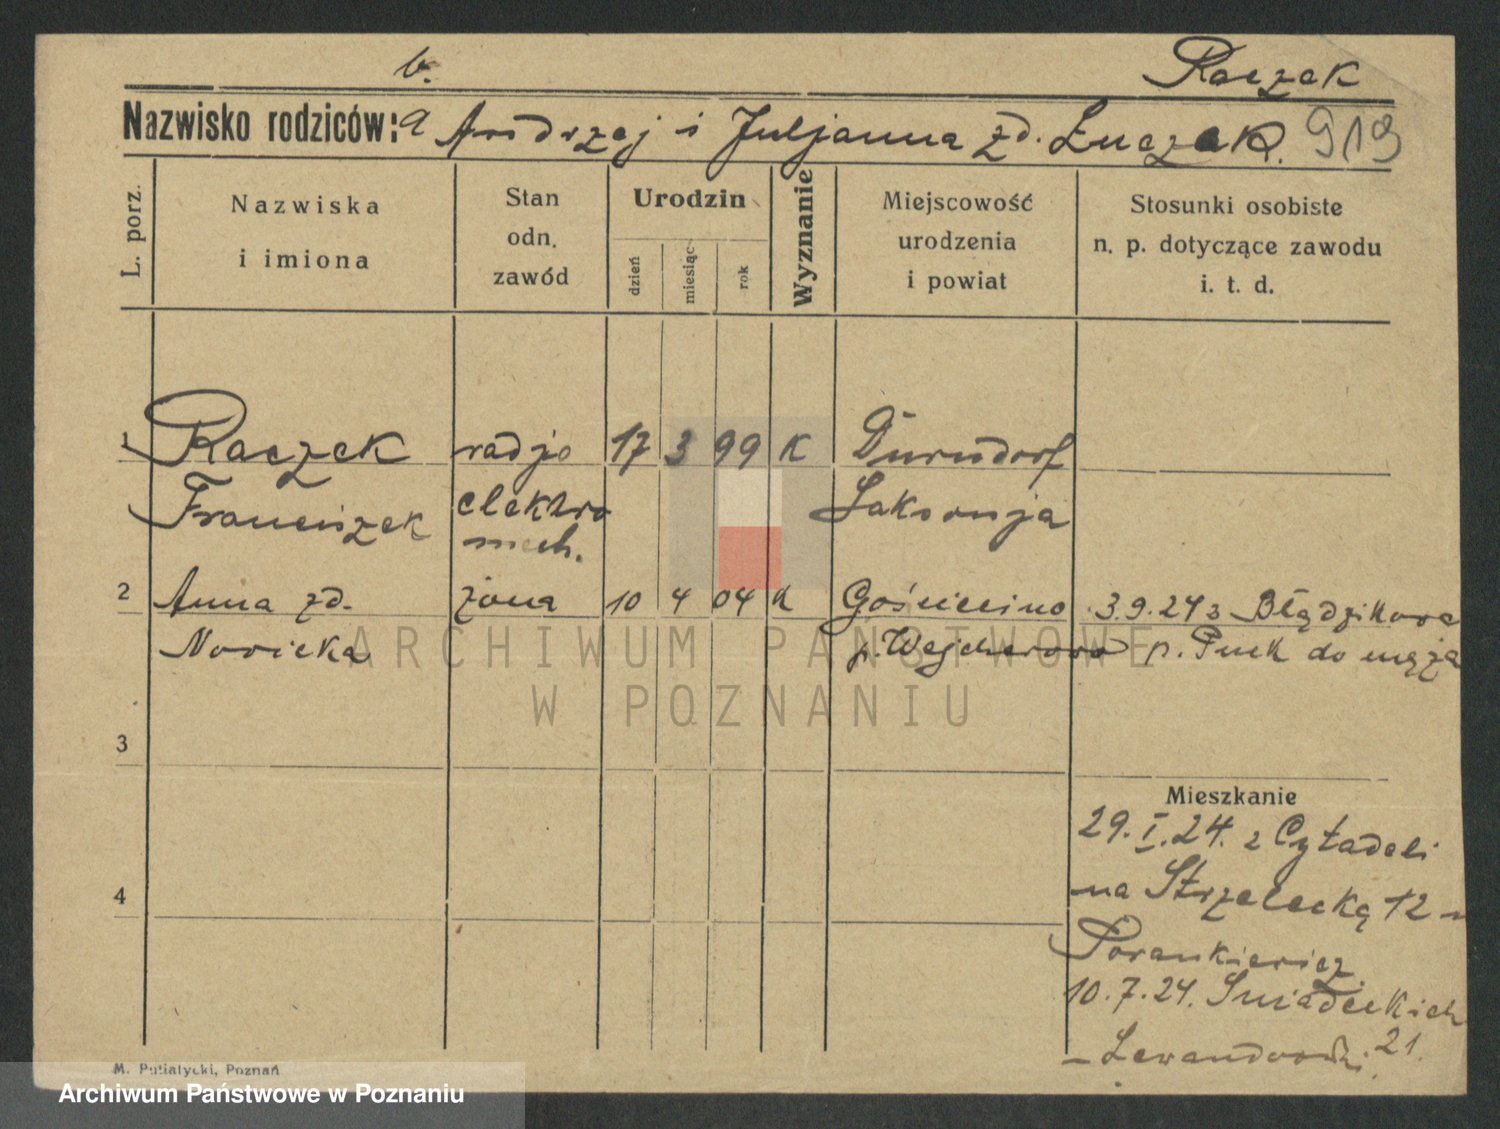 b.
Raczek
Nazwisko rodziców: a Andrzej i Juljanna zd. Łuczak. 919
L. porz.
Nazwiska
i imiona
Stan
odn.
zawód
Urodzin
dzień
miesiąc
rok
Wyznanie
Miejscowość
urodzenia
i powiat
Stosunki osobiste
n. p. dotyczące zawodu
i. t. d.
1 Raczek radjo 17 3 99 K Dürndorf
Franciszek elektro Saksonja
mech.
2 Anna zd. żona 10 4 04 k Gościcino 3.9.24 z Błądzikowa
Nowicka p. Wejcherowo p. Puck do męża
3
Mieszkanie
29.I.24. z Cytadeli
4
na Strzelecką 12 u
Porankiewicz
10.7.24. Śniadeckich
21.
M. Putiatycki, Poznań
ARCHIWUM PAŃSTWOWE
W POZNANIU
Archiwum Państwowe w Poznaniu